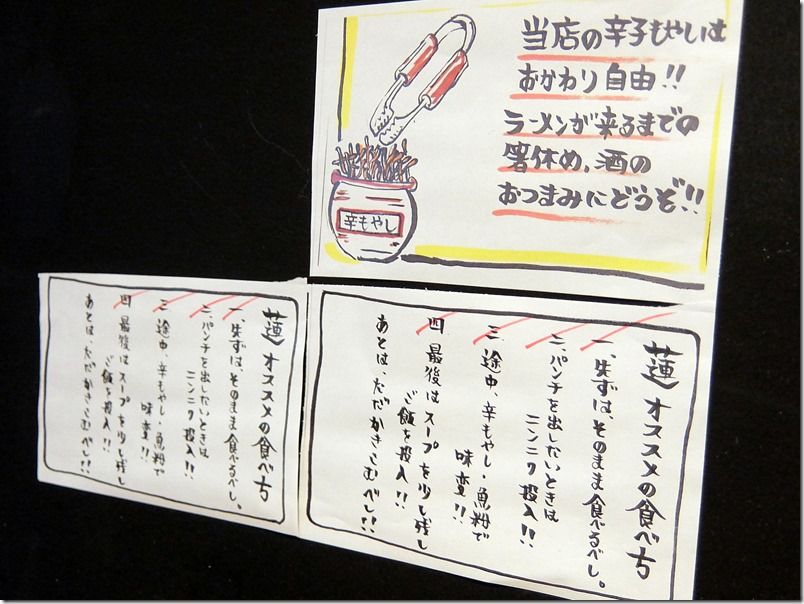 当店の辛子もやしは
おかわり自由!!
ラーメンが来るまでの
箸休め、酒の
おつまみにどうぞ!!
辛もやし
蓮 オススメの食べ方
一、先ずは、そのまま食べるべし。
二、パンチを出したいときは
ニンニク投入!!
三、途中、辛もやし・魚粉で
味変!!
四、最後はスープを少し残し
ご飯を投入!!
あとは、ただかきこむべし!!
蓮 オススメの食べ方
一、先ずは、そのまま食べるべし。
二、パンチを出したいときは
ニンニク投入!!
三、途中、辛もやし・魚粉で
味変!!
四、最後はスープを少し残し
ご飯を投入!!
あとは、ただかきこむべし!!